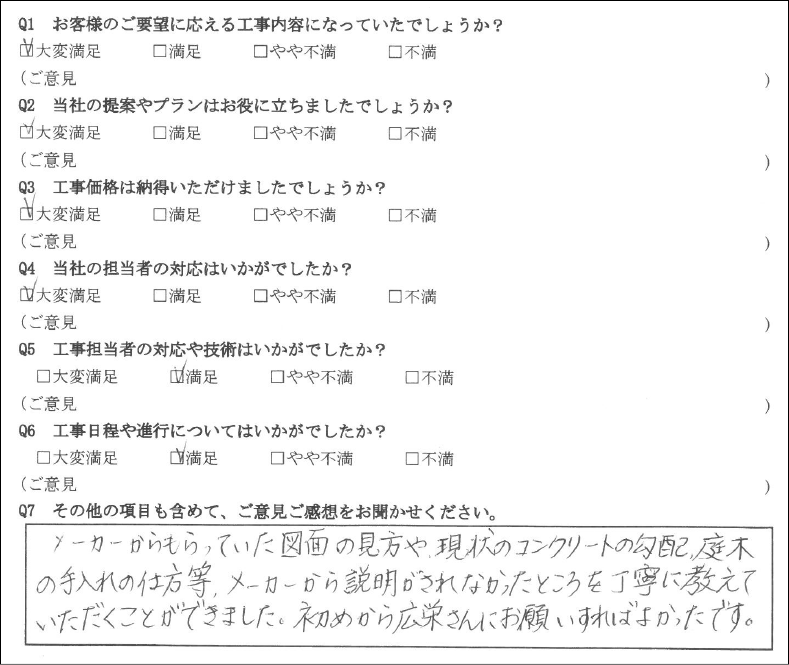 Q1 お客様のご要望に応える工事内容になっていたでしょうか？
☑大変満足 □満足 □やや不満 □不満
（ご意見 ）
Q2 当社の提案やプランはお役に立ちましたでしょうか？
☑大変満足 □満足 □やや不満 □不満
（ご意見 ）
Q3 工事価格は納得いただけましたでしょうか？
☑大変満足 □満足 □やや不満 □不満
（ご意見 ）
Q4 当社の担当者の対応はいかがでしたか？
☑大変満足 □満足 □やや不満 □不満
（ご意見 ）
Q5 工事担当者の対応や技術はいかがでしたか？
□大変満足 ☑満足 □やや不満 □不満
（ご意見 ）
Q6 工事日程や進行についてはいかがでしたか？
□大変満足 ☑満足 □やや不満 □不満
（ご意見 ）
Q7 その他の項目も含めて、ご意見ご感想をお聞かせください。
メーカーからもらっていた図面の見方や、現状のコンクリートの勾配、庭木
の手入れの仕方等、メーカーから説明がされなかったところを丁寧に教えて
いただくことができました。初めから広栄さんにお願いすればよかったです。